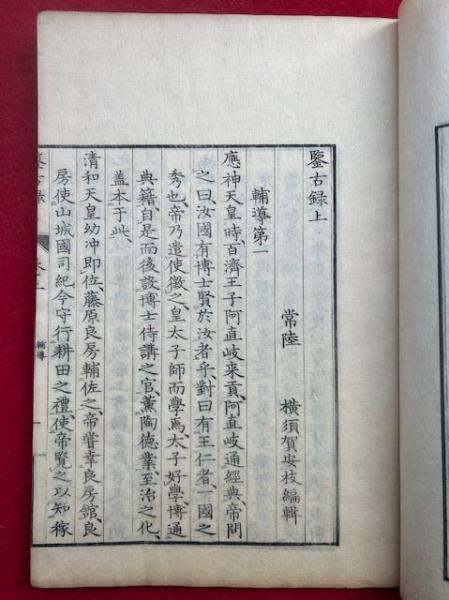 鑒古録上
常陸 横須賀安枝編輯
輔導第一
應神天皇時、百濟王子阿直岐來貢、阿直岐通經典、帝問
之曰、汝國有博士賢於汝者乎、對曰有王仁者、一國之
秀也、帝乃遣使徴之、皇太子師而學焉、太子好學、博通
典籍、自是而後、設博士侍講之官、薫陶德業、至治之化、
蓋本于此、
清和天皇幼冲即位、藤原良房輔佐之、帝嘗幸良房舘、良
房使山城國司紀今守行耕田之禮、使帝覽之、以知稼
鑒古録
輔導